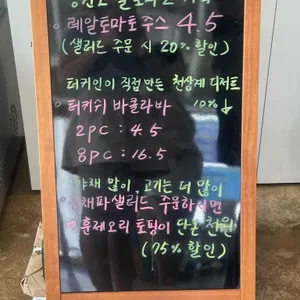 레알토마토주스 4.5
(샐러드 주문 시 20% 할인)
터키인이 직접 만든 천상계 디저트
터키쉬 바클라바 10%↓
2pc : 4.5
8pc : 16.5
야채 많이, 고기는 더 많이
샐러드 주문하시면
훈제오리 토핑이 단돈 천원
(75% 할인)